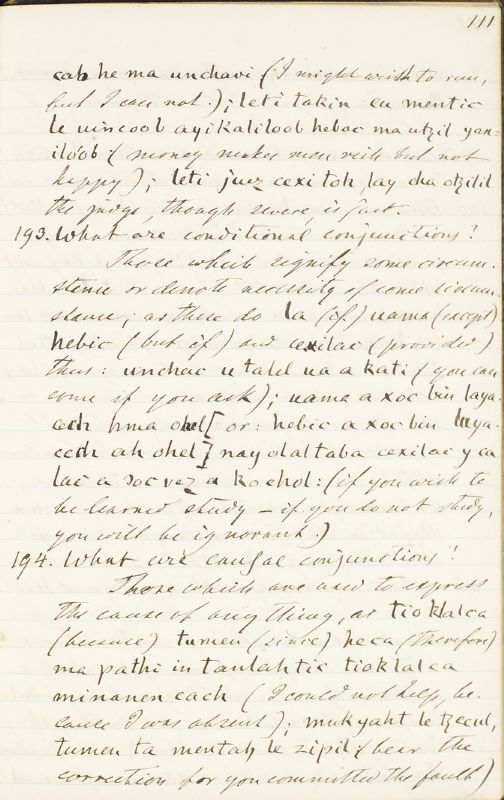 111
cab he ma unchavi (I might wish to run,
but I can not.); leti takin cu mentic
le uincoob ayikaliloob hebac ma utzil yan-
iloob (money makes men rich but not
happy); leti juez cexi toh, lay cha otzilil
the judge, though severe, is just.
193. What are conditional conjunctions?
Those which signify some circum-
stance or denote necessity of some circum-
stance; as these do la (if) uama (except)
hebic (but if) and cexilac (provided)
thus: unchac u talel ua a kati (you can
come if you ask); uama a xoc bin laya-
cech hma ohel or: hebic a xoc bin laya-
cech ah ohel nay olal taba cexilac y ca
lac a xoc vez a kochol: (if you wish to
be learned study – if you do not study,
you will be ignorant.)
194. What are causal conjunctions?
Those which are used to express
the cause of any thing, as tioklalca
(because) tumen (since) heca (therefore)
ma pathi in tanlahtic tioklalca
minanen cach (I could not help, be-
cause I was absent); mukyaht le tzecul,
tumen ta mentah le zipil (bear the
correction for you committed the fault)